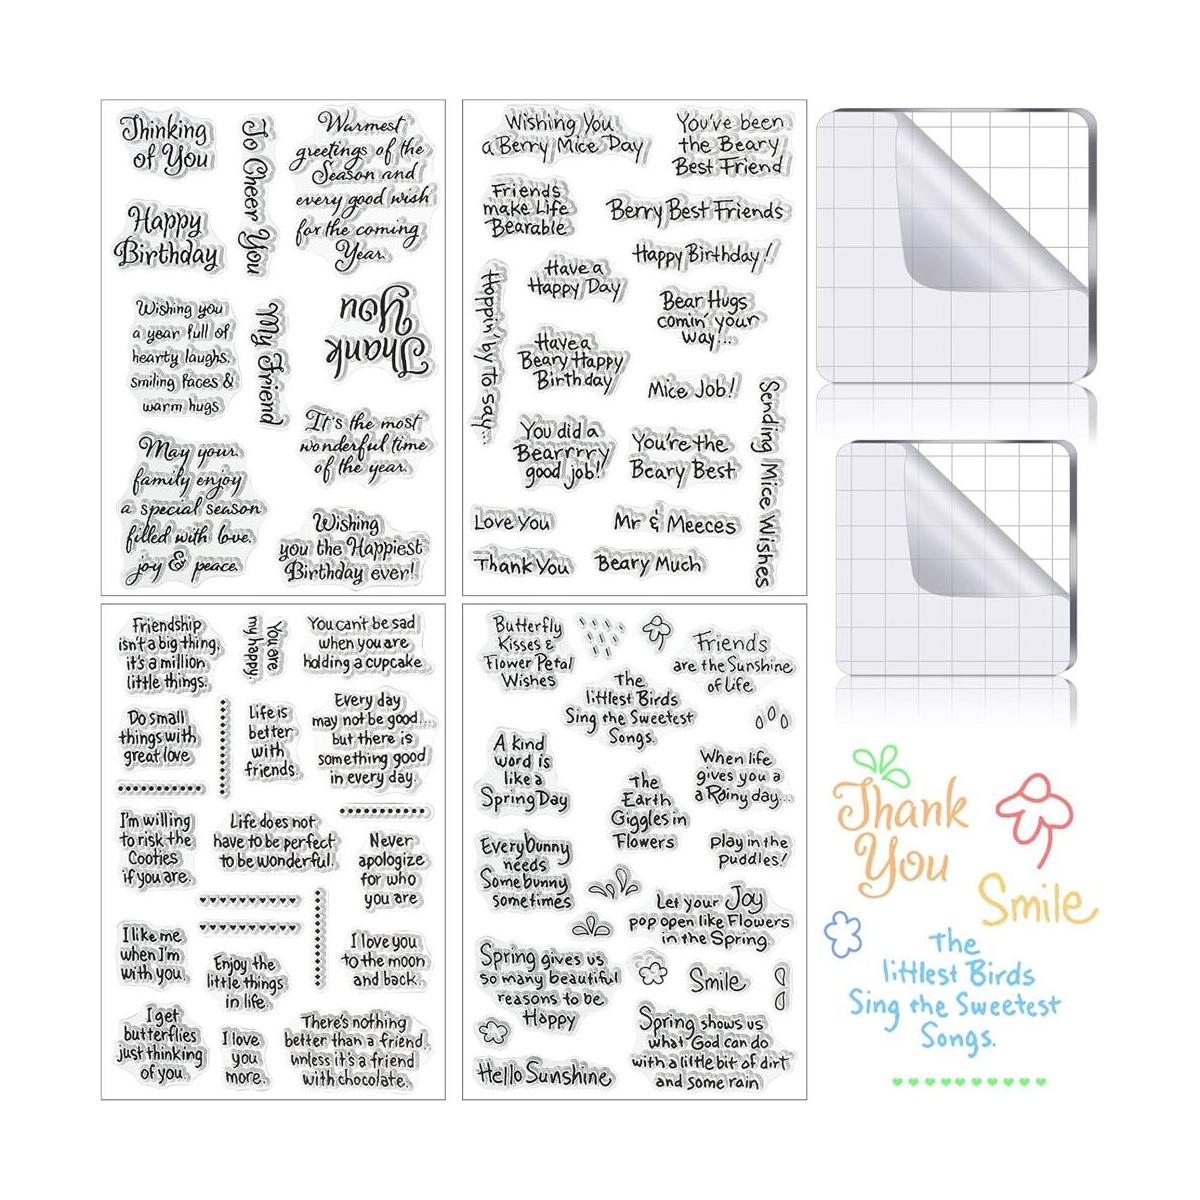 Thinking
of You
To Cheer You
Warmest
greetings of the
Season and
every good wish
for the coming
Year.
Happy
Birthday
Wishing you
a year full of
hearty laughs,
smiling faces &
warm hugs
My Friend
Thank
You
It's the most
wonderful time
of the year.
May your
family enjoy
a special season
filled with love,
joy & peace.
Wishing
you the Happiest
Birthday ever!
Wishing You
a Berry Mice Day
You've been
the Beary
Best Friend
Friends
make Life
Bearable
Berry Best Friends
Happy Birthday!
Have a
Happy Day
Hoppin' by to say...
Bear Hugs
comin' your
way...
Have a
Beary Happy
Birthday
Mice Job!
Sending Mice Wishes
You did a
Bearrrry
good job!
You're the
Beary Best
Love You
Mr & Meeces
Thank You
Beary Much
Friendship
isn't a big thing,
it's a million
little things.
You are
my happy
You can't be sad
when you are
holding a cupcake.
Do small
things with
great love
Life is
better
with
friends.
Every day
may not be good...
but there is
something good
in every day.
I'm willing
to risk the
Cooties
if you are.
Life does not
have to be perfect
to be wonderful.
Never
apologize
for who
you are
I like me
when I'm
with you.
Enjoy the
little things
in life.
I love you
to the moon
and back.
I get
butterflies
just thinking
of you.
I love
you
more.
There's nothing
better than a friend,
unless it's a friend
with chocolate.
Butterfly
Kisses &
Flower Petal
Wishes
Friends
are the Sunshine
of Life
The
littlest Birds
Sing the Sweetest
Songs.
A kind
word is
like a
Spring Day
The
Earth
Giggles in
Flowers
When life
gives you a
a Rainy day...
play in the
puddles!
Everybunny
needs
Somebunny
sometimes
Let your Joy
pop open like Flowers
in the Spring.
Spring gives us
so many beautiful
reasons to be
Happy
Smile
Spring shows us
what God can do
with a little bit of dirt
and some rain
Hello Sunshine
Thank
You
Smile
The
littlest Birds
Sing the Sweetest
Songs.